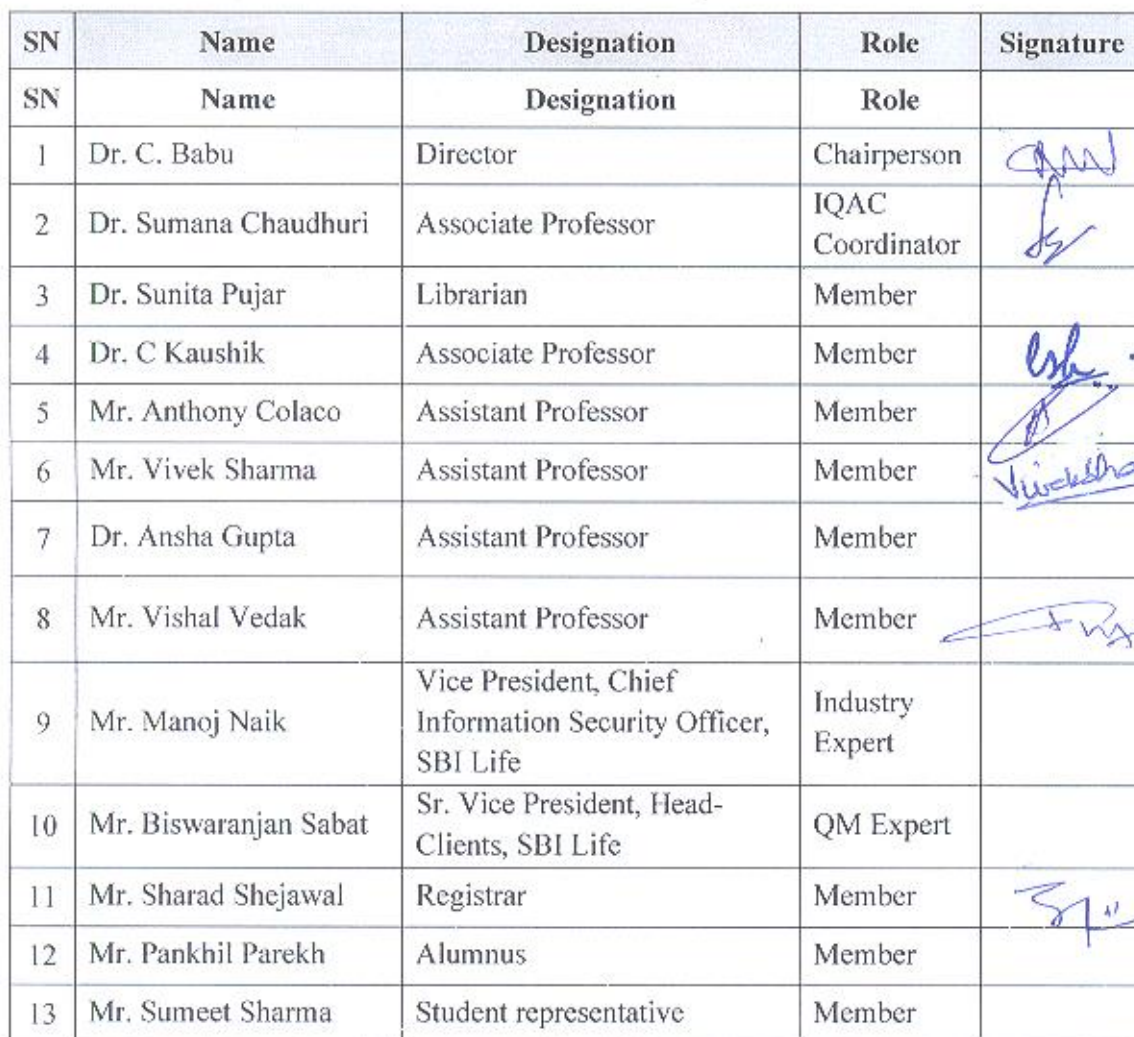 SN Name Designation Role Signature
SN Name Designation Role
1 Dr. C. Babu Director Chairperson
2 Dr. Sumana Chaudhuri Associate Professor IQAC
Coordinator
3 Dr. Sunita Pujar Librarian Member
4 Dr. C Kaushik Associate Professor Member
5 Mr. Anthony Colaco Assistant Professor Member
6 Mr. Vivek Sharma Assistant Professor Member
7 Dr. Ansha Gupta Assistant Professor Member
8 Mr. Vishal Vedak Assistant Professor Member
9 Mr. Manoj Naik Vice President, Chief
Information Security Officer,
SBI Life Industry
Expert
10 Mr. Biswaranjan Sabat Sr. Vice President, Head-
Clients, SBI Life QM Expert
11 Mr. Sharad Shejawal Registrar Member
12 Mr. Pankhil Parekh Alumnus Member
13 Mr. Sumeet Sharma Student representative Member